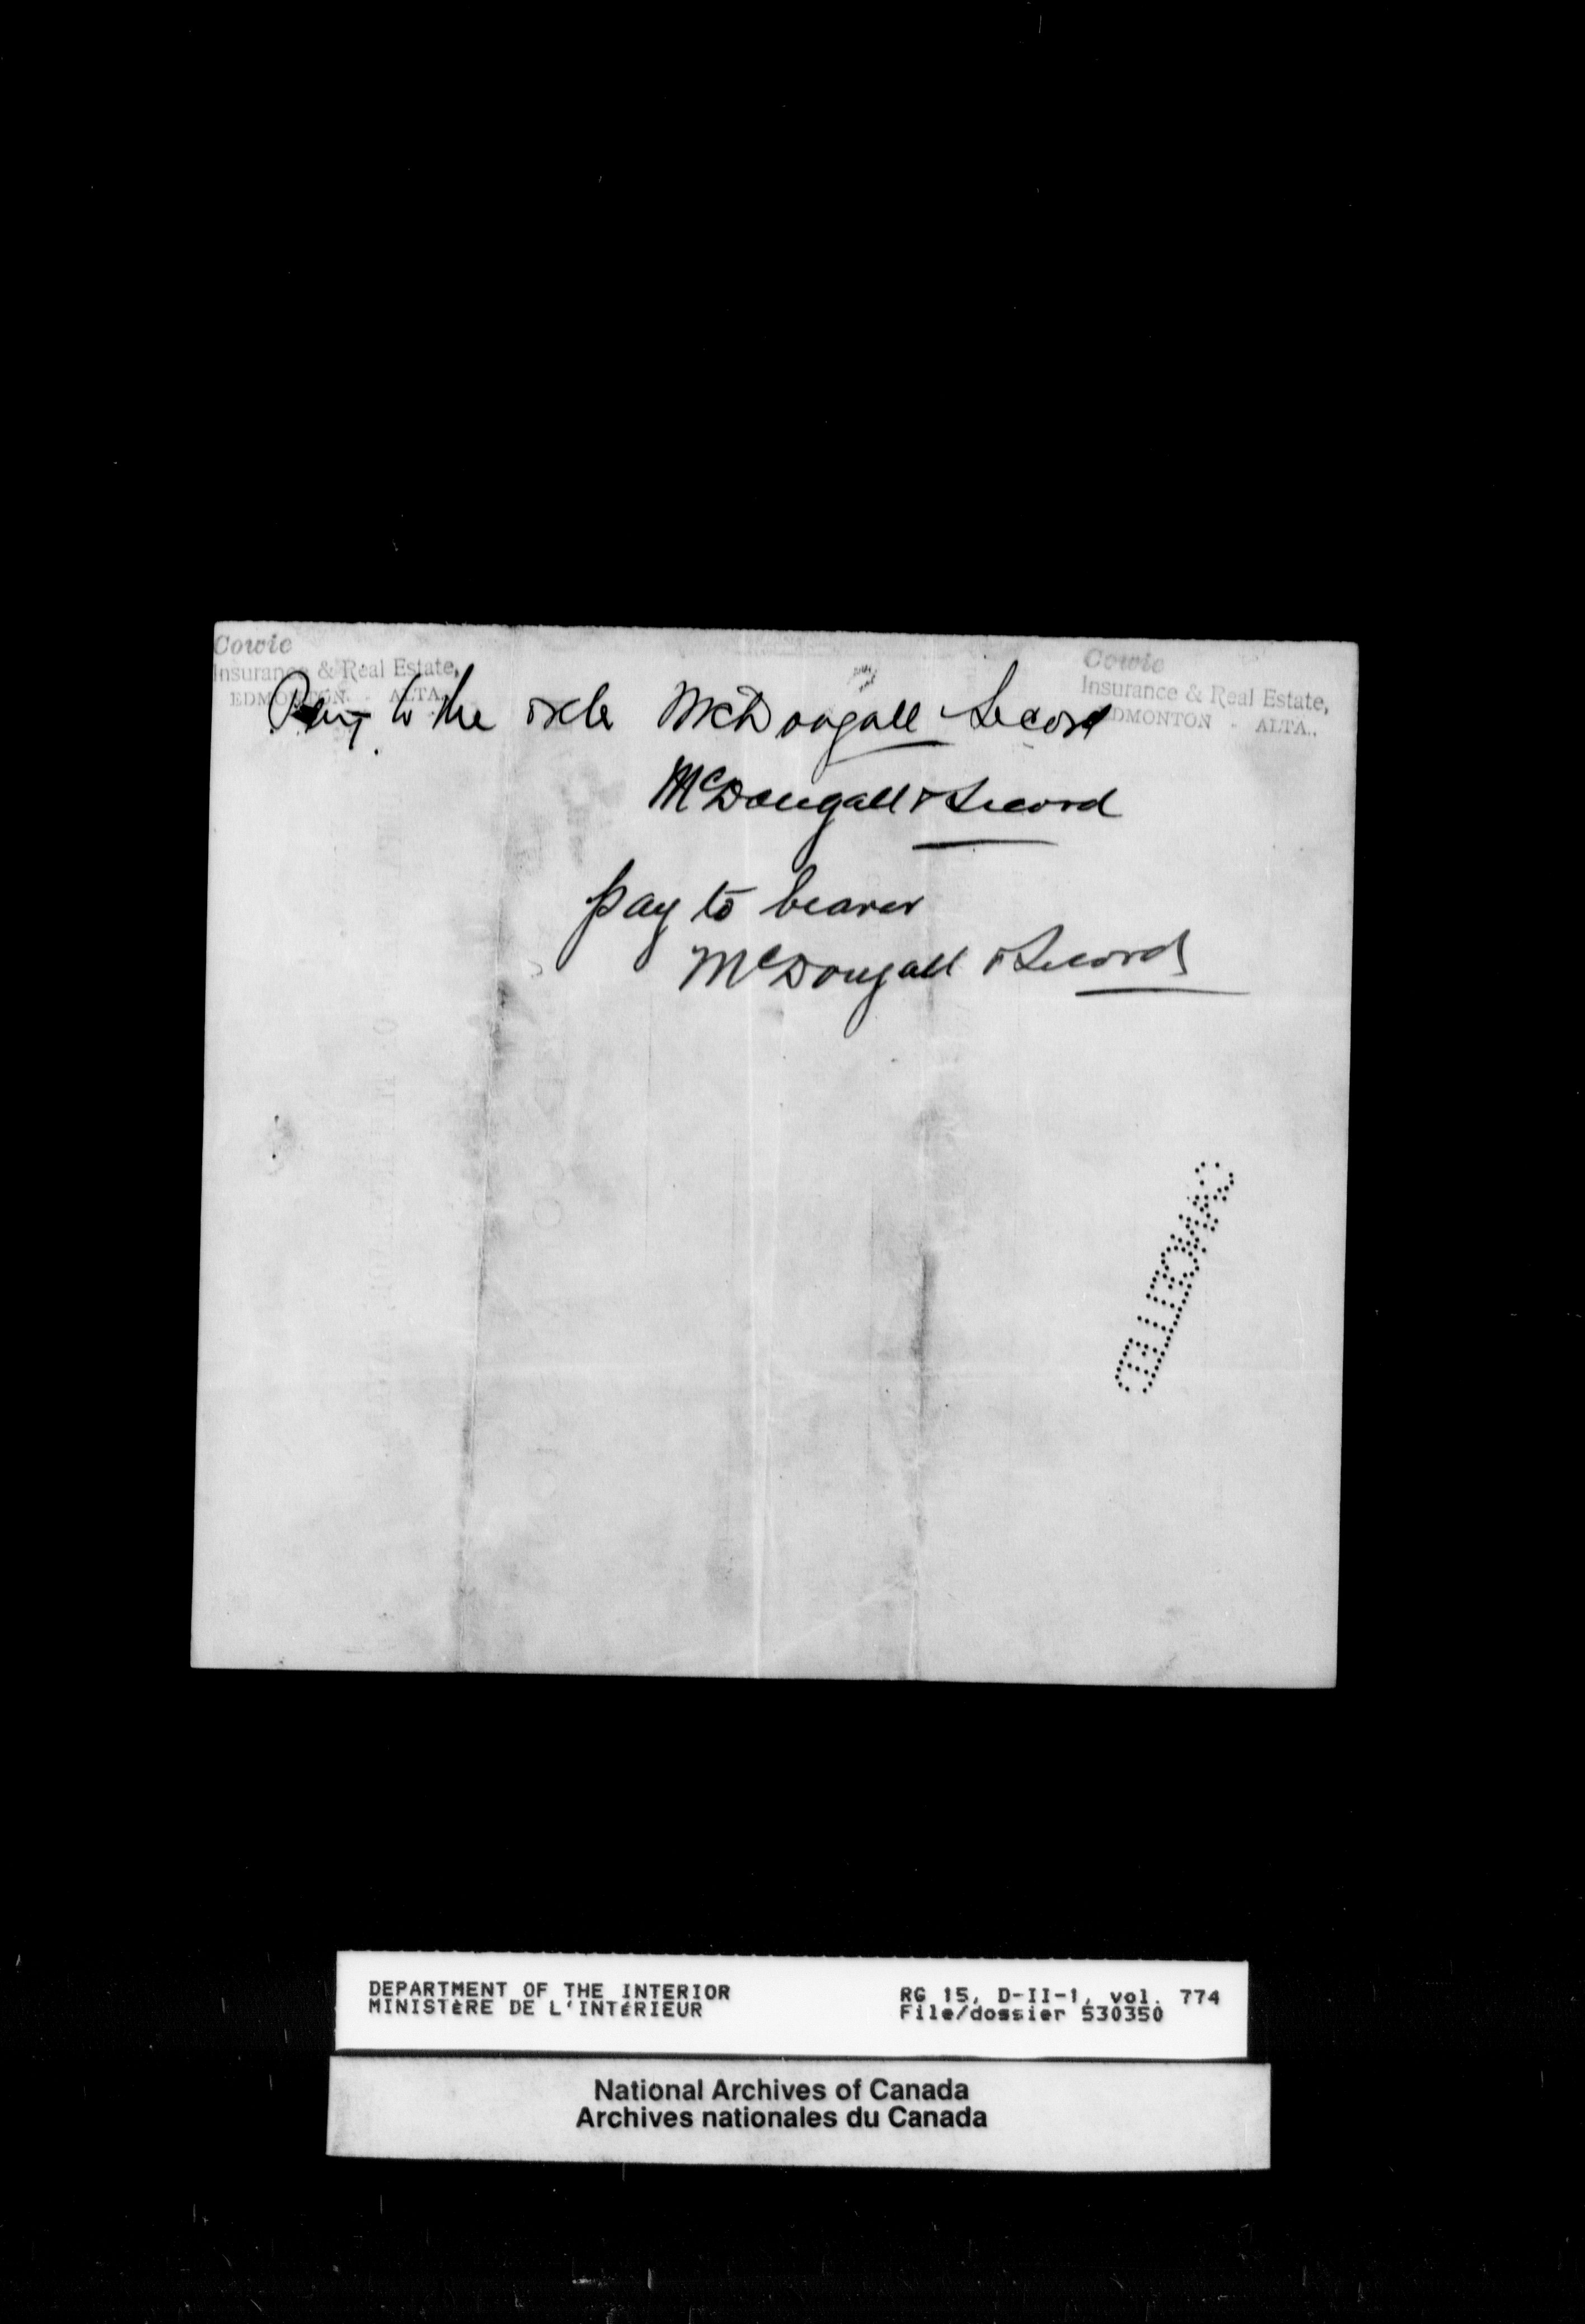 Cowie
Insurance & Real Estate,
EDMONTON - ALTA.
Cowie
Insurance & Real Estate,
EDMONTON - ALTA.
Pay to the order McDougall Secord
McDougall & Secord
pay to bearer
McDougall & Secord
CANCELLED
DEPARTMENT OF THE INTERIOR
MINISTÈRE DE L'INTÉRIEUR
RG 15, D-II-1, vol. 774
File/dossier 530350
National Archives of Canada
Archives nationales du Canada